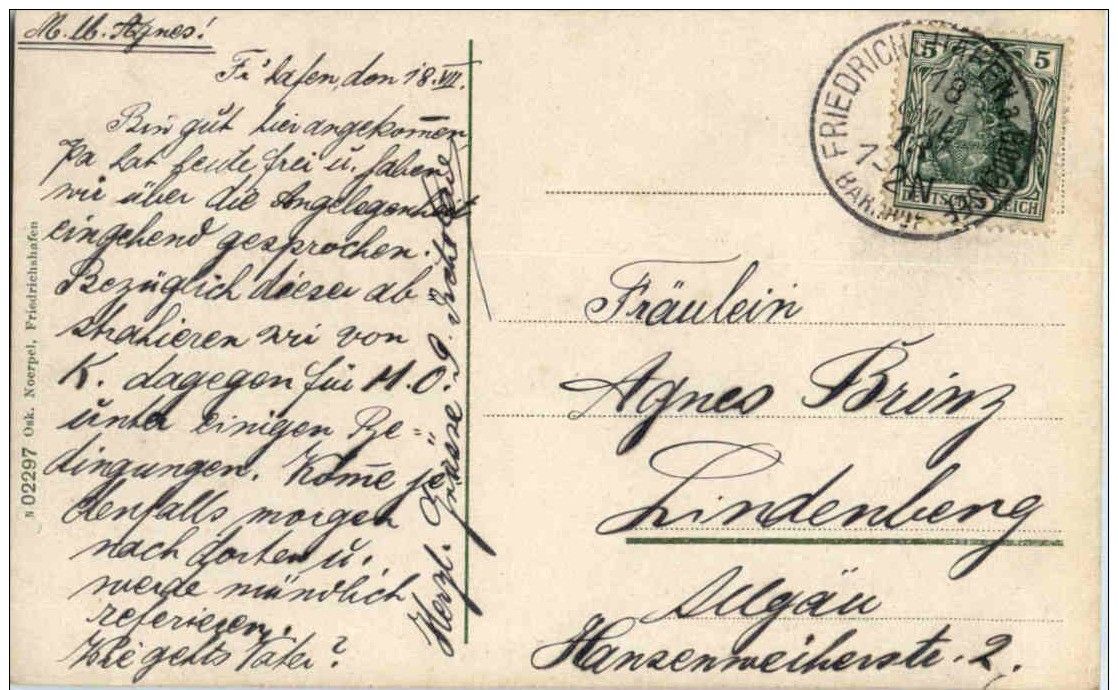 M. lb. Agnes!
Fr'hafen, den 18. VII.
Bin gut hier angekom̅en,
Pa hat heute frei u. haben
wir über die Angelegenheit
eingehend gesprochen.
Bezüglich dieser ab
strahieren wir von
K. dagegen für M.O.
unter einigen Be=
dingungen. Kom̅e je
denfalls morgen
nach dorten u.
werde mündlich
referieren.
Wie gehts Vater?
Herzl. Grüsse
N 02297 Osk. Noerpel, Friedrichshafen
FRIEDRICHSHAFEN a. BODENSEE
18
BAHNHOF
5 5
DEUTSCHES REICH
Fräulein
Agnes Brinz
Lindenberg
Allgäu
Hansenweiherstr. 2.